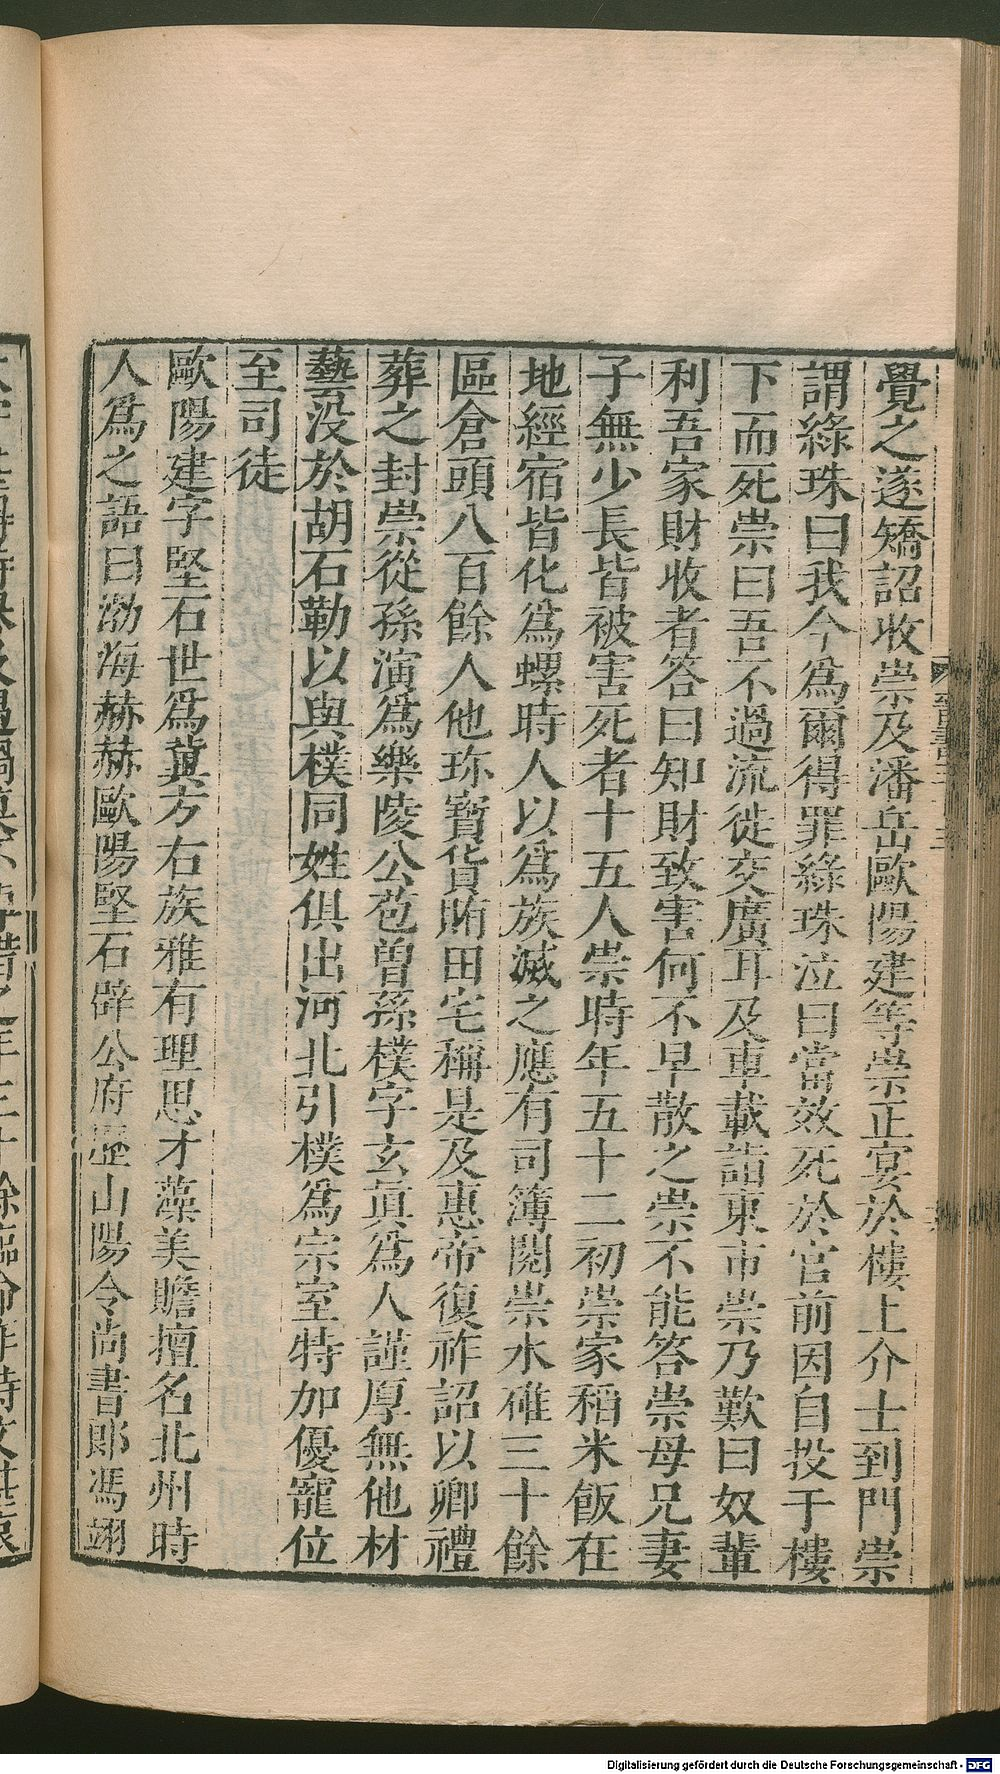 覺之遂矯詔收崇及潘岳歐陽建等崇正宴於樓上介士到門崇
謂綠珠曰我今爲爾得罪綠珠泣曰當效死於官前因自投于樓
下而死崇曰吾不過流徙交廣耳及車載詣東市崇乃歎曰奴輩
利吾家財收者答曰知財致害何不早散之崇不能答崇母兄妻
子無少長皆被害死者十五人崇時年五十二初崇家稻米飯在
地經宿皆化爲螺時人以爲族滅之應有司簿閱崇水碓三十餘
區倉頭八百餘人他珎寶貨賄田宅稱是及惠帝復祚詔以卿禮
葬之封崇從孫演爲樂陵公苞曾孫樸字玄眞爲人謹厚無他材
藝没於胡石勒以與樸同姓俱出河北引樸爲宗室特加優寵位
至司徒
歐陽建字堅石世爲冀方右族雅有理思才藻美贍擅名北州時
人爲之語曰渤海赫赫歐陽堅石辟公府歷山陽令尚書郎馮翊
Digitalisierung gefördert durch die Deutsche Forschungsgemeinschaft - DFG